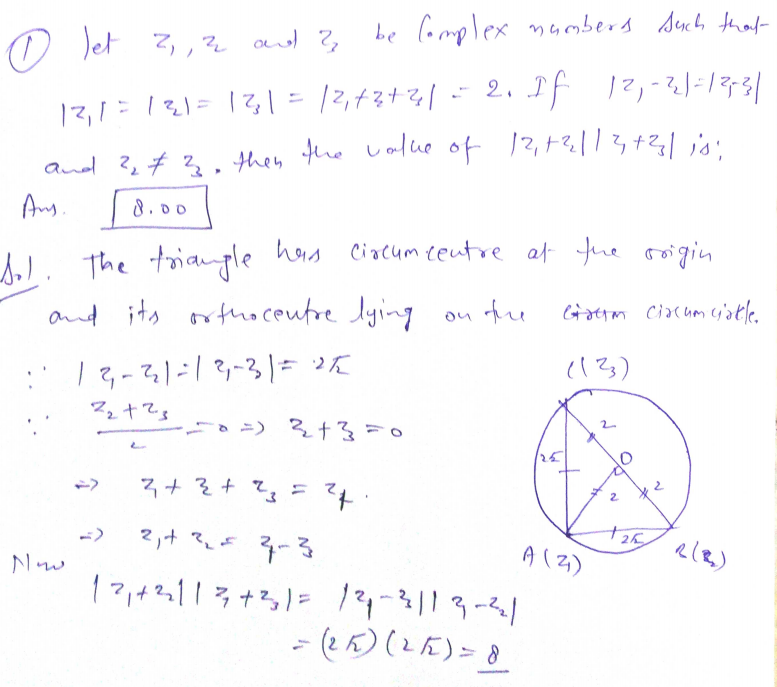 ① Let z₁, z₂ and z₃ be Complex numbers such that
|z₁| = |z₂| = |z₃| = |z₁+z₂+z₃| = 2. If |z₁-z₂|=|z₁-z₃|
and z₂ ≠ z₃, then the value of |z₁+z₂||z₁+z₃| is:
Ans. 8.00
Sol. The triangle has circumcentre at the origin
and its orthocentre lying on the circumcircle.
∵ |z₁-z₂|=|z₁-z₃|= 2√2
∵ (z₂+z₃)/2 = 0 => z₂+z₃=0
=> z₁+z₂+z₃ = z₁.
=> z₁+z₂ = z₁-z₃
Now
|z₁+z₂||z₁+z₃|= |z₁-z₃||z₁-z₂|
= (2√2)(2√2)= 8
C(z₃)
2
2√2
O
2
2
2√2
A(z₁)
B(z₂)